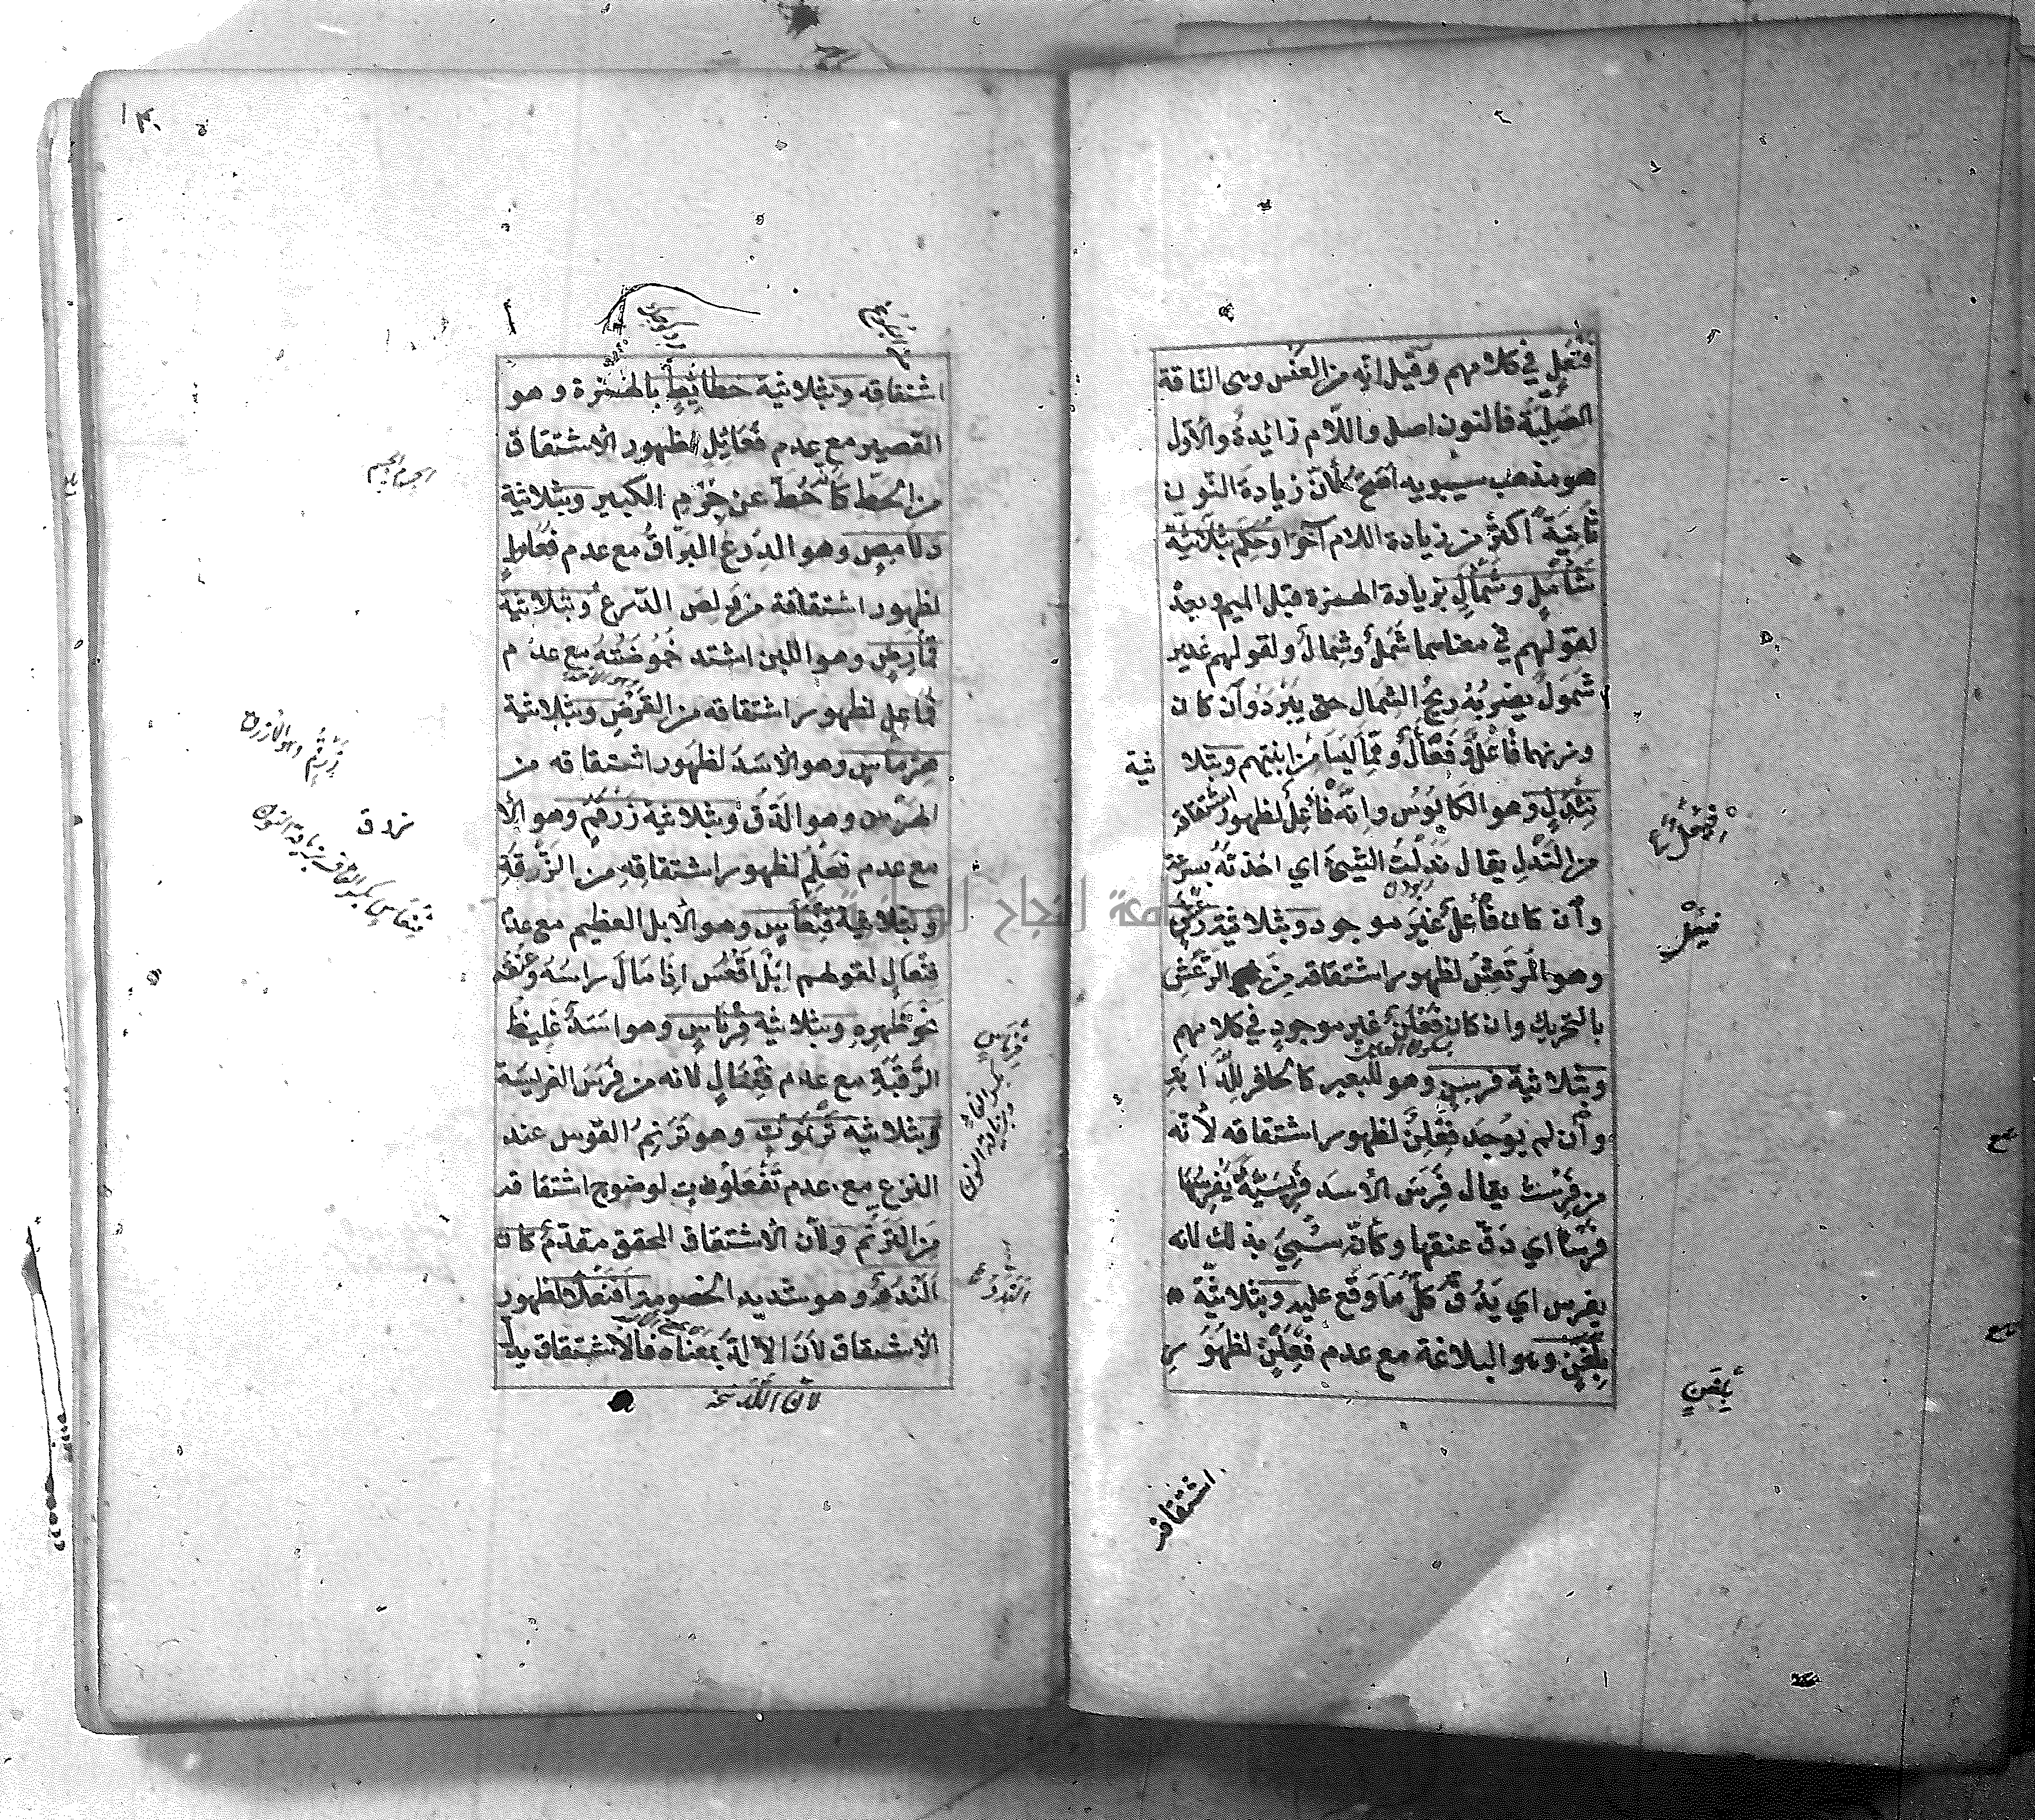 فنعل في كلامهم وقيل انه من العنس وهي الناقة
الصلبة فالنون اصل واللام زائدة والاول
هو مذهب سيبويه اصح لأن زيادة النون
ثانية أكثر من زيادة اللام آخرا وحكم بثلاثية
شأمل وشمأل بزيادة الهمزة قبل الميم وبعد
لقولهم في معناهما شمل وشمال ولقولهم غدير
شمول يضربه ريح الشمال حتى يبرد وأن كان
وزنهما فأعل وفعأل ومما ليسا من ابنيتهم وبثلا ثية
نئدل وهو الكابوس وانه فأعل لظهور اشتقاقه
من الندل يقال ندلت الشيئ اي اخذته بسرعة
وأن كان فأعل غير موجود وبثلاثية رعشن
وهو المرتعش لظهور اشتقاقه من الرعش
بالتحريك وان كان فعلن غير موجود في كلامهم
بسكون العين
وبثلاثية فرسن وهو للبعير كالحافر للدابة
وأن لم يوجد فعلن لظهور اشتقاقه لأنه
من فرست يقال فرس الأسد فريسته يفرسها
فرسا اي دق عنقها وكأنه سمي بذلك لانه
يفرس اي يدق كل ما وقع عليه وبثلاثية
بلغن وهو البلاغة مع عدم فعلن لظهور
نئدل
بلغن
اشتقاقه
١٣٠
اشتقاقه وبثلاثية حطائط بالهمزة وهو
القصير مع عدم فعائل لظهور الاشتقاق
من الحط كأنه حط عن جرم الكبير وبثلاثية
دلامص وهو الدرع البراق مع عدم فعامل
لظهور اشتقاقه من دلص الدرع وبثلاثية
قمارص وهو اللبن اشتد حموضته مع عدم
فماعل لظهور اشتقاقه من القرص وبثلاثية
هرماس وهو الاسد لظهور اشتقاقه من
الهرس وهو الدق وبثلاثية زرقم وهو الأ زرق
مع عدم فعلم لظهور اشتقاقه من الزرقة
وبثلاثية قنعاس وهو الابل العظيم مع عدم
فنعال لقولهم ابل اقعس اذا مال راسه وعنقه
نحو ظهره وبثلاثية فرناس وهو اسد غليظ
الرقبة مع عدم فعنال لانه من فرس الفريسة
وبثلاثية ترنموت وهو ترنم القوس عند
النزع مع عدم تفعلوت لوضوح اشتقاقه
من الترنم ولان الاشتقاق المحقق مقدم كان
ألندد وهو شديد الخصومة افنعلا لظهور
الاشتقاق لأن الألد بمعناه فالاشتقاق يدل
زرقم وهو الازرق
قنعاس بكسر القاف بزيادة النون
فرناس
بكسر الفاء
وبزيادة النون